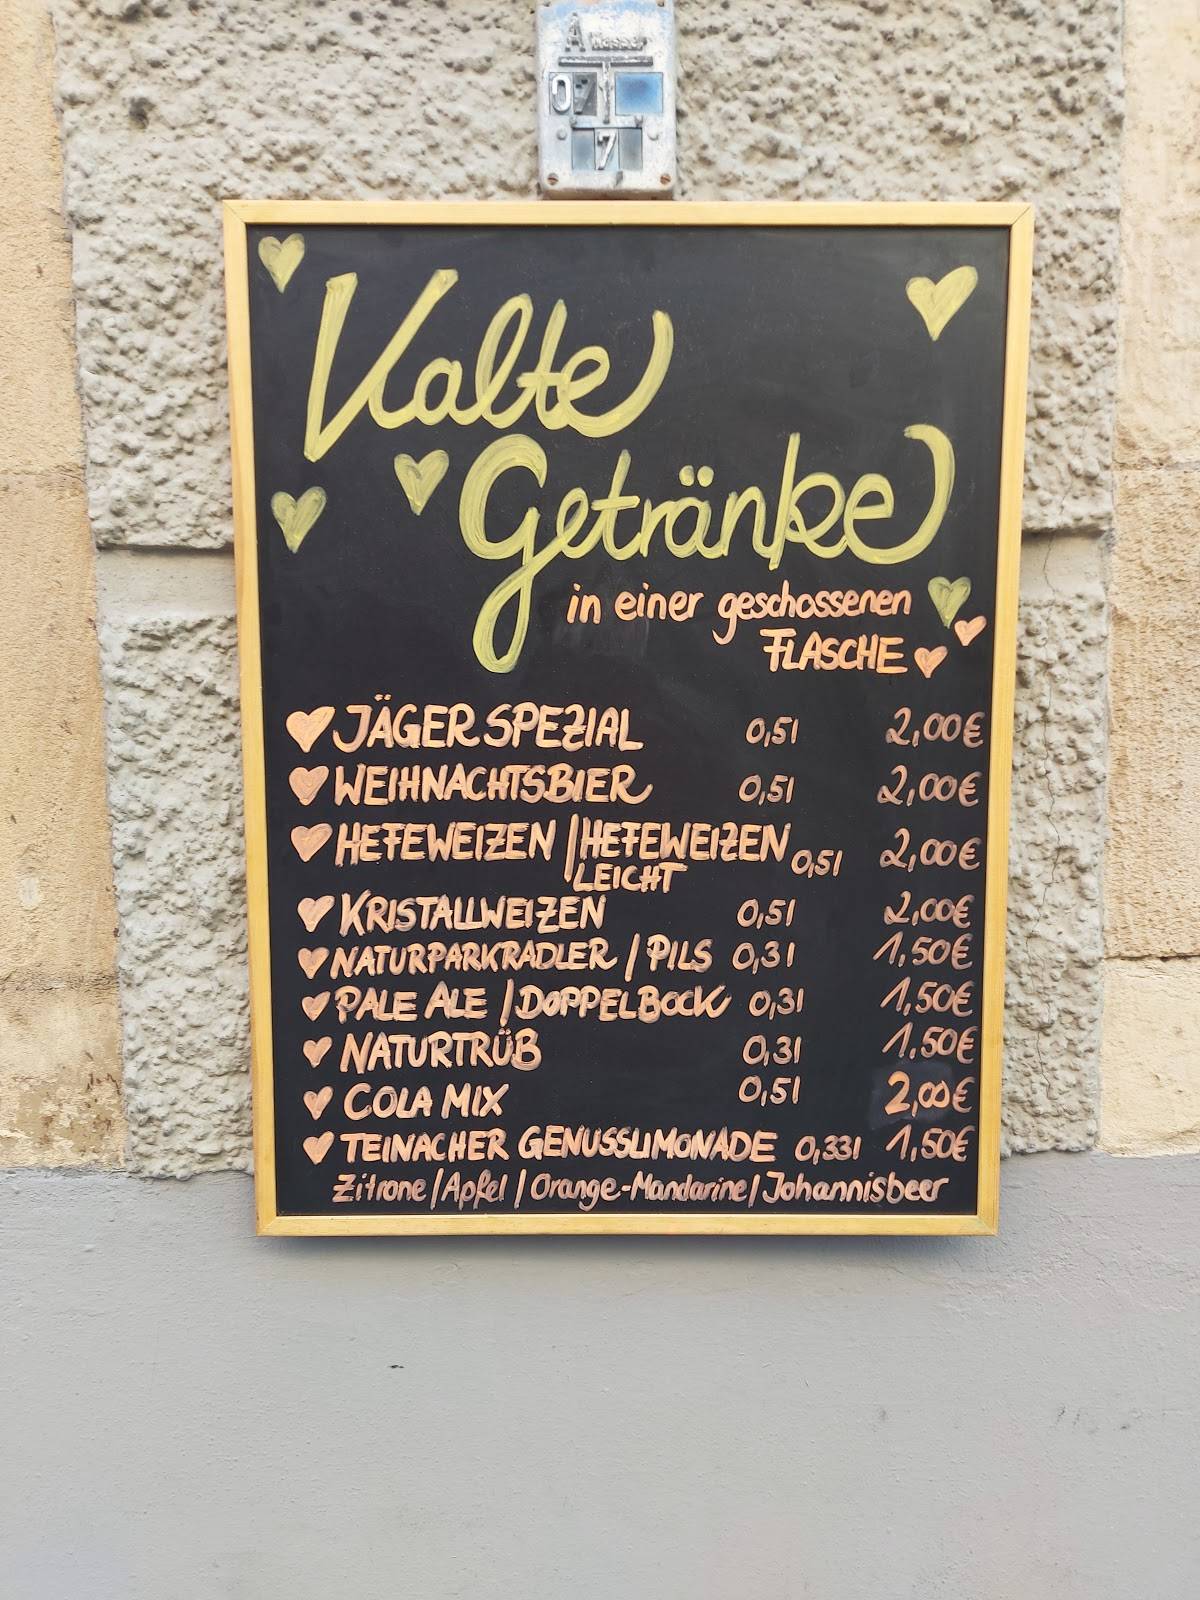 A Wasser
07
7
Kalte
Getränke
in einer geschossenen
FLASCHE
JÄGER SPEZIAL 0,5l 2,00€
WEIHNACHTSBIER 0,5l 2,00€
HEFEWEIZEN / HEFEWEIZEN 0,5l 2,00€
LEICHT
KRISTALLWEIZEN 0,5l 2,00€
NATURPARKRADLER / PILS 0,3l 1,50€
PALE ALE / DOPPELBOCK 0,3l 1,50€
NATURTRÜB 0,3l 1,50€
COLA MIX 0,5l 2,00€
TEINACHER GENUSSLIMONADE 0,33l 1,50€
Zitrone / Apfel / Orange-Mandarine / Johannisbeer